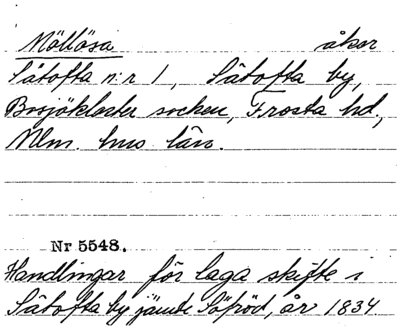 Möllåsa åker
Sätofta n:r 1, Sätofta by,
Bosjökloster socken, Frosta hd,
Mlm. hus län.
Nr 5548.
Handlingar för laga skifte i
Sätofta by jämte Söpröd, år 1834